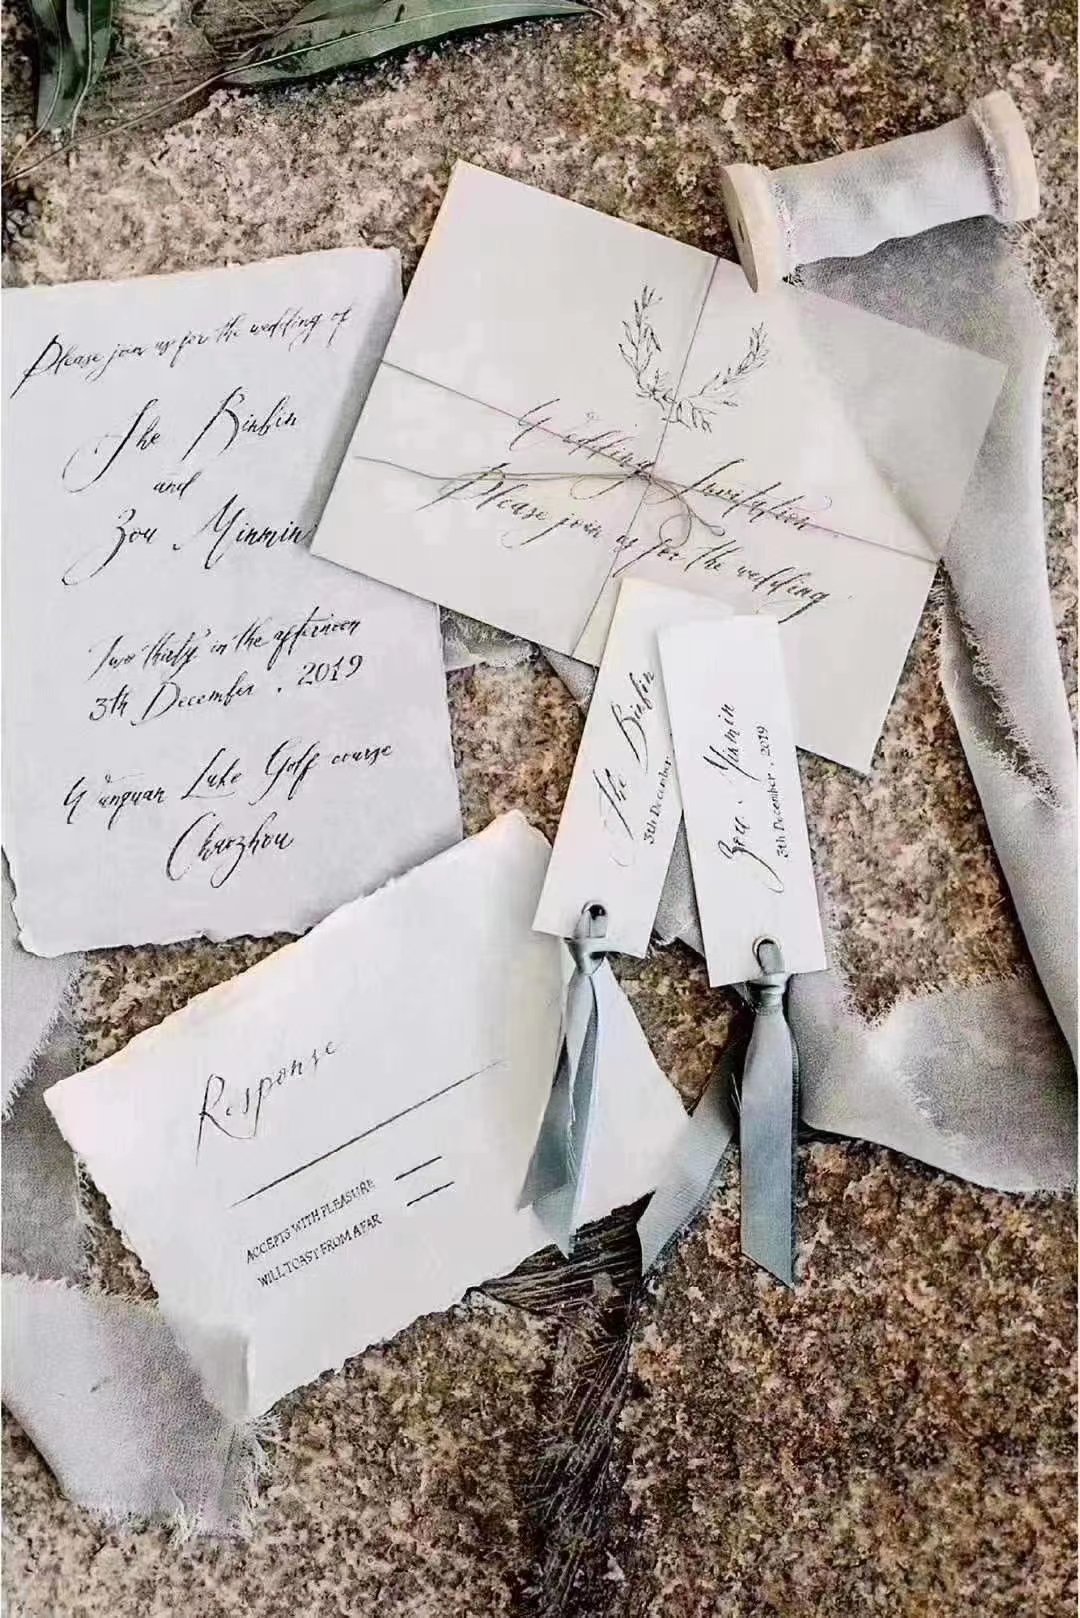 Please join us for the wedding of
She Binbin
and
Zou Minmin
Two thirty in the afternoon
3th December . 2019
Wanguan Lake Golf course
Chaozhou
Wedding Invitation
Please join us for the wedding
She Binbin
3th December
Zou . Minmin
3th December . 2019
Response
ACCEPTS WITH PLEASURE
WILL TOAST FROM AFAR